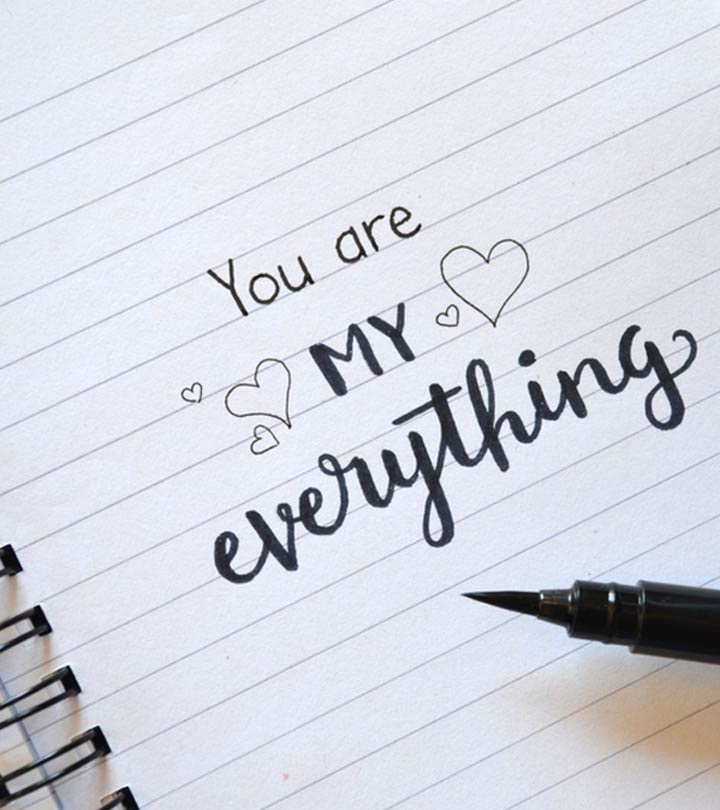 You are
MY
everything